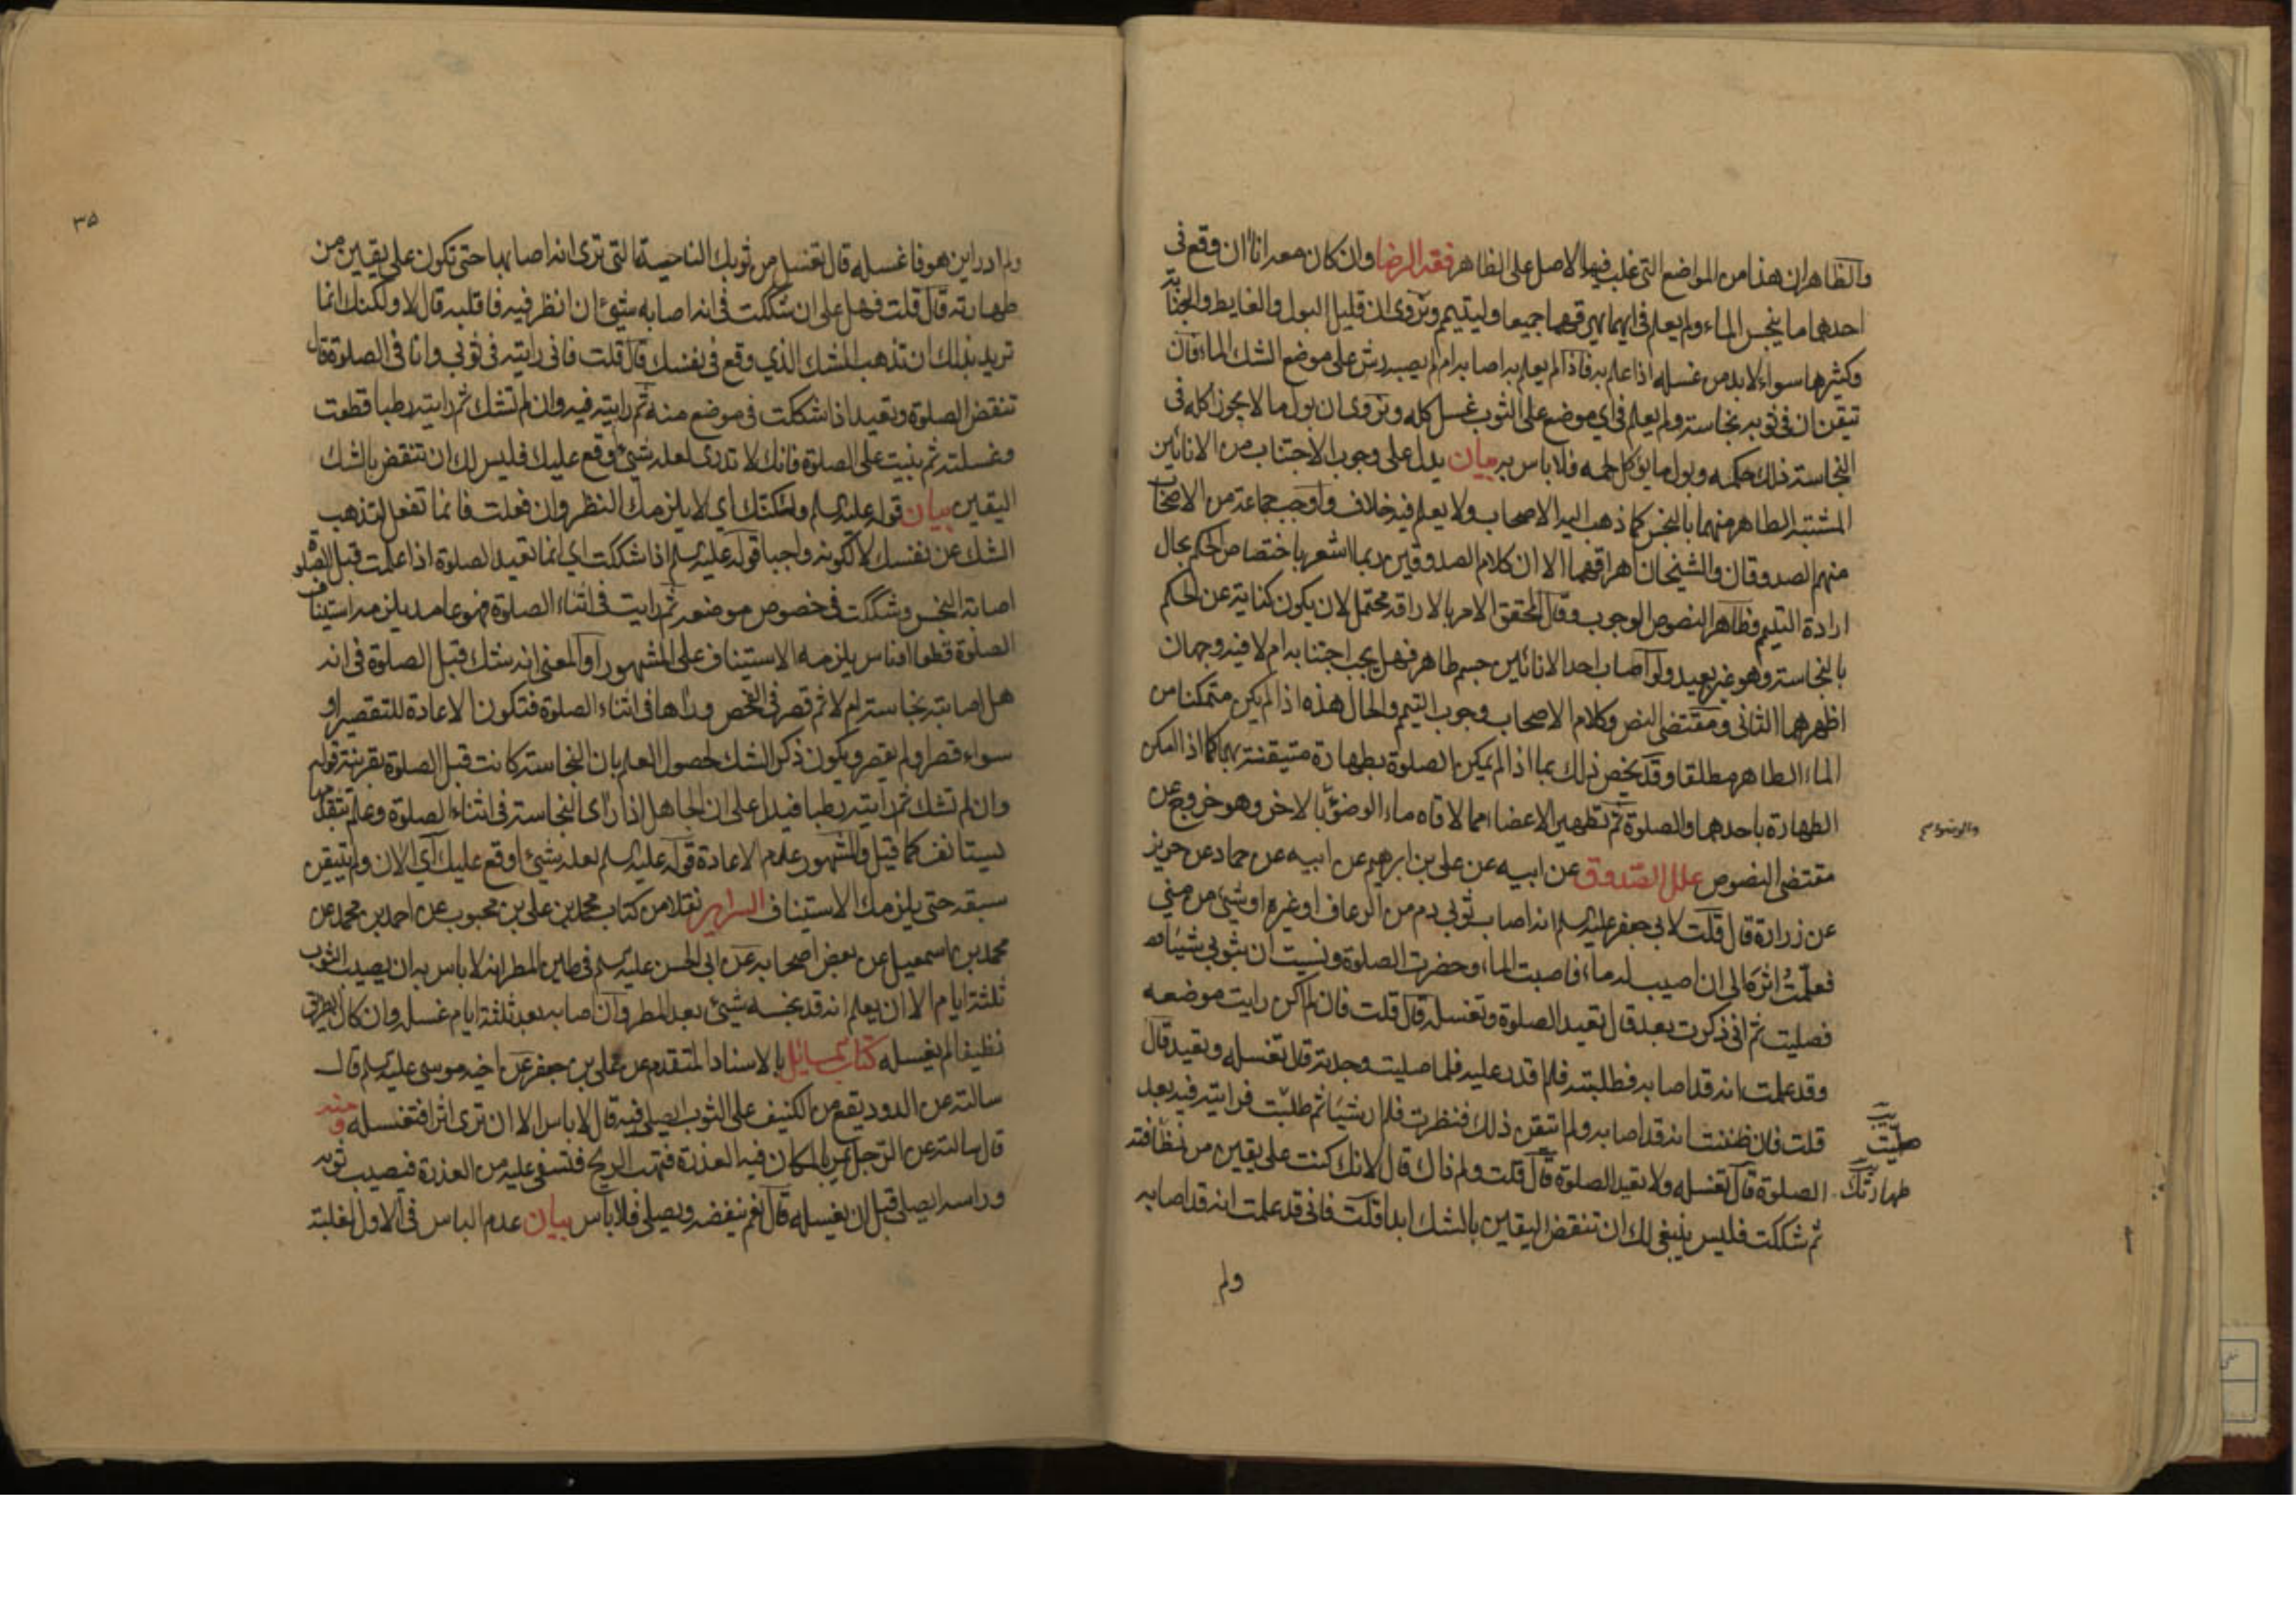 والظاهر ان هذا من المواضع التي غلب فيها الاصل على الظاهر فقه الرضا وان كان معه اناآن وقع في
احدهما ما ينجس الماء ولم يعلم في ايهما يهرقهما جميعا وليتيمم ونروى ان قليل البول والغايط والجنابة
وكثيرها سواء لابد من غسله اذا علم به فاذا لم يعلم به اصابه ام لم يصبه رش على موضع الشك الماء فان
تيقن ان في ثوبه نجاسة ولم يعلم في اي موضع على الثوب غسل كله ونروى ان بول ما لا يجوز اكله في
النجاسة ذلك حكمه وبول ما يؤكل لحمه فلا باس به بيان يدل على وجوب الاجتناب من الانائين
المشتبه الطاهر منهما بالنجس كما ذهب اليه الاصحاب ولا يعلم فيه خلاف واوجب جماعة من الاصحاب
منهم الصدوقان والشيخان اهراقهما الا ان كلام الصدوقين ربما اشعر باختصاص الحكم بحال
ارادة التيمم فظاهر النصوص الوجوب وقال المحقق الامر بالاراقة محتمل لان يكون كناية عن الحكم
بالنجاسة وهو غير بعيد ولو اصاب احد الانائين جسم طاهر فهل يجب اجتنابه ام لا فيه وجهان
اظهرهما الثاني ومقتضى النص وكلام الاصحاب وجوب التيمم والحال هذه اذا لم يكن متمكنا من
الماء الطاهر مطلقا وقد يخص ذلك بما اذا لم يمكن الصلوة بطهارة متيقنة بهما كما اذا امكن
الطهارة باحدهما والصلوة ثم تطهير الاعضاء مما لاقاه ماء الوضوء بالاخر وهو خروج عن
والوضوء صح
مقتضى النصوص علل الصدوق عن ابيه عن علي بن ابرهيم عن ابيه عن حماد عن حريز
عن زرارة قال قلت لابي جعفر عليه السلم انه اصاب ثوبي دم من الرعاف او غيره او شيئ من مني
فعلمت اثره الى ان اصيب له ماء فاصبت الماء وحضرت الصلوة ونسيت ان بثوبي شيئا
فصليت ثم اني ذكرت بعد قال تعيد الصلوة وتغسله قال قلت فان لم اكن رايت موضعه
وقد علمت انه قد اصابه فطلبته فلم اقدر عليه فلما صليت وجدته قال تغسله وتعيد قال
قلت فان ظننت انه قد اصابه ولم اتيقن ذلك فنظرت فلم ار شيئا ثم طلبت فرايته فيه بعد
صليت
الصلوة قال تغسله ولا تعيد الصلوة قال قلت ولم ذاك قال لانك كنت على يقين من نظافته
طهارتك
ثم شككت فليس ينبغي لك ان تنقض اليقين بالشك ابدا قلت فاني قد علمت انه قد اصابه
ولم
۳۵
ولم ادر اين هو فاغسله قال تغسل من ثوبك الناحية التي ترى انه اصابها حتى تكون على يقين من
طهارته قال قلت فهل علي ان شككت في انه اصابه شيئ ان انظر فيه فاقلبه قال لا ولكنك انما
تريد بذلك ان تذهب الشك الذي وقع في نفسك قال قلت فاني رايته في ثوبي وانا في الصلوة قال
تنقض الصلوة وتعيد اذا شككت في موضع منه ثم رايته فيه وان لم تشك ثم رايته رطبا قطعت
وغسلته ثم بنيت على الصلوة فانك لا تدري لعله شيئ وقع عليك فليس لك ان تنقض بالشك
اليقين بيان قوله عليه السلم ولكنك اي لا يلزمك النظر وان فعلت فانما تفعل لتذهب
الشك عن نفسك لا لكونه واجبا قوله عليه السلم اذا شككت اي انما تعيد الصلوة اذا علمت قبل الصلوة
اصابة النجس وشككت في خصوص موضعه ثم رايت في اثناء الصلوة فهو عامد يلزمه استيناف
الصلوة قطعا او ناس يلزمه الاستيناف على المشهور او المعنى انه شك قبل الصلوة في انه
هل اصابته نجاسة ام لا ثم قصر في الفحص وراها في اثناء الصلوة فتكون الاعادة للتقصير او
سواء قصر او لم يقصر ويكون ذكر الشك لحصول العلم بان النجاسة كانت قبل الصلوة بقرينة قوله
وان لم تشك ثم رايته رطبا فيدل على ان الجاهل اذا رأى النجاسة في اثناء الصلوة وعلم تقدمها
يستانف كما قيل والمشهور عدم الاعادة قوله عليه السلم لعله شيئ اوقع عليك اي الان ولم تتيقن
سبقه حتى يلزمك الاستيناف السراير نقلا من كتاب محمد بن علي بن محبوب عن احمد بن محمد عن
محمد بن اسمعيل عن بعض اصحابه عن ابي الحسن عليه السلم في طين المطر انه لا باس به ان يصيب الثوب
ثلثة ايام الا ان يعلم انه قد نجسه شيئ بعد المطر وان اصابه بعد ثلثة ايام غسله وان كان الطريق
نظيفا لم يغسله كتاب المسائل بالاسناد المتقدم عن علي بن جعفر عن اخيه موسى عليه السلم قال
سالته عن الدود يقع من الكنيف على الثوب ايصلى فيه قال لا باس الا ان ترى اثرا فتغسله ومنه
قال سالته عن الرجل يمر بالمكان فيه العذرة فتهب الريح فتسفي عليه من العذرة فيصيب ثوبه
وراسه ايصلي قبل ان يغسله قال نعم ينفضه ويصلي فلا باس بيان عدم الباس في الاول لغلبة